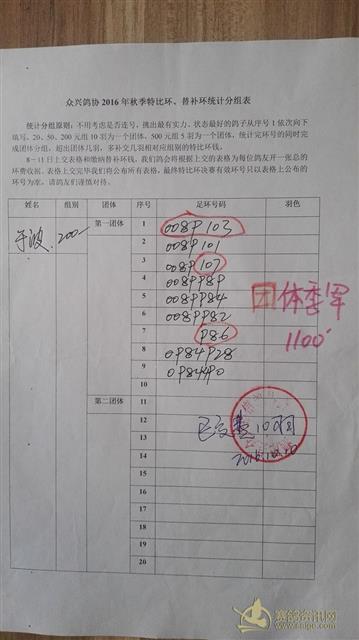 众兴鸽协 2016 年秋季特比环、替补环统计分组表
统计分组原则：不用考虑是否连号，挑出最有实力、状态最好的鸽子从序号 1 依次向下
填写。20、50、200 元组 10 羽为一个团体，500 元组 5 羽为一个团体，统计完环号的同时完
成团体分组，超出团体几羽，多补交几羽相对应组别的特比环钱。
8－11 日上交表格和缴纳替补环钱，我们鸽会将根据上交的表格为每位鸽友开一张总的
环费收据。表格上交完毕我们将公布所有表格，最终特比环决赛有效环号只以表格上公布的
环号为准。请鸽友们谨慎对待。
姓名 组别 团体 序号 足环号码 羽色
于波 200 第一团体 1 008P103
2 008P101
3 008P107
4 008PP8P
5 008PP84
6 008PP82
7 P86
8 0P84P28
9 0P844P0
10
团体季军
1100
第二团体 11
12
13
14
15
16
17
18
19
20
2016.10.10
赛鸽资讯网
www.saige.com